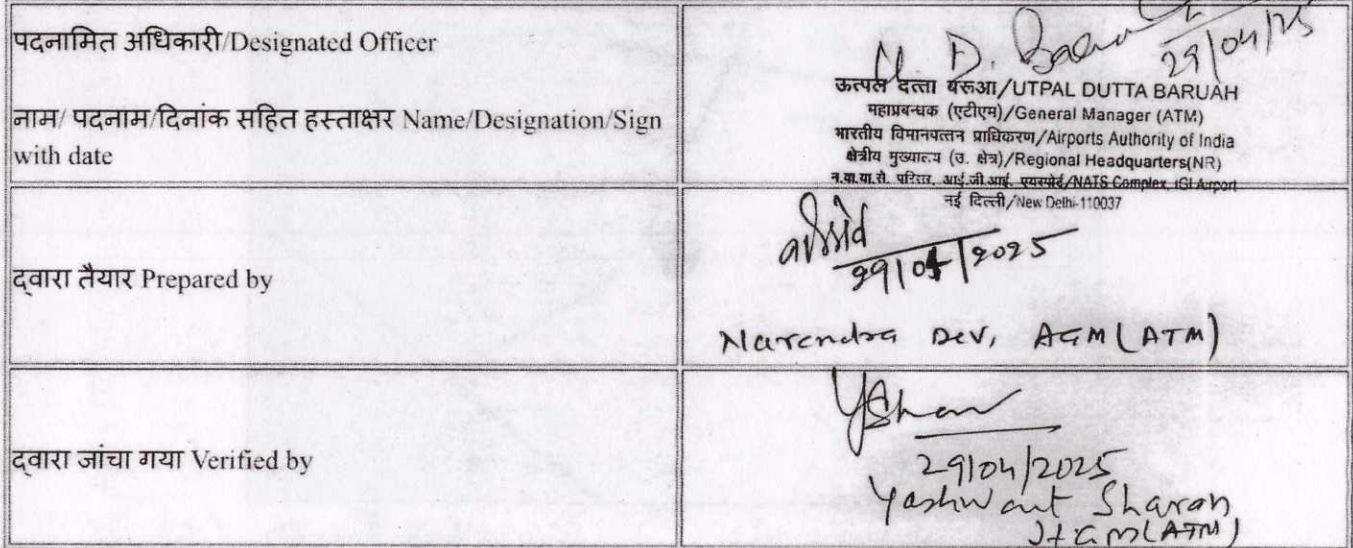 पदनामित अधिकारी/Designated Officer
नाम/ पदनाम/दिनांक सहित हस्ताक्षर Name/Designation/Sign
with date
29/04/25
ऊत्पल दत्ता बरूआ/UTPAL DUTTA BARUAH
महाप्रबन्धक (एटीएम)/General Manager (ATM)
भारतीय विमानपत्तन प्राधिकरण/Airports Authority of India
क्षेत्रीय मुख्यालय (उ. क्षेत्र)/Regional Headquarters(NR)
परिसर, आई.जी.आई. एयरपोर्ट/NATS Complex, IGI Airport
नई दिल्ली/New Delhi-110037
द्वारा तैयार Prepared by
29/04/2025
Narendra Dev, AGM(ATM)
द्वारा जांचा गया Verified by
29/04/2025
Yashwant Sharan
Jt GM(ATM)